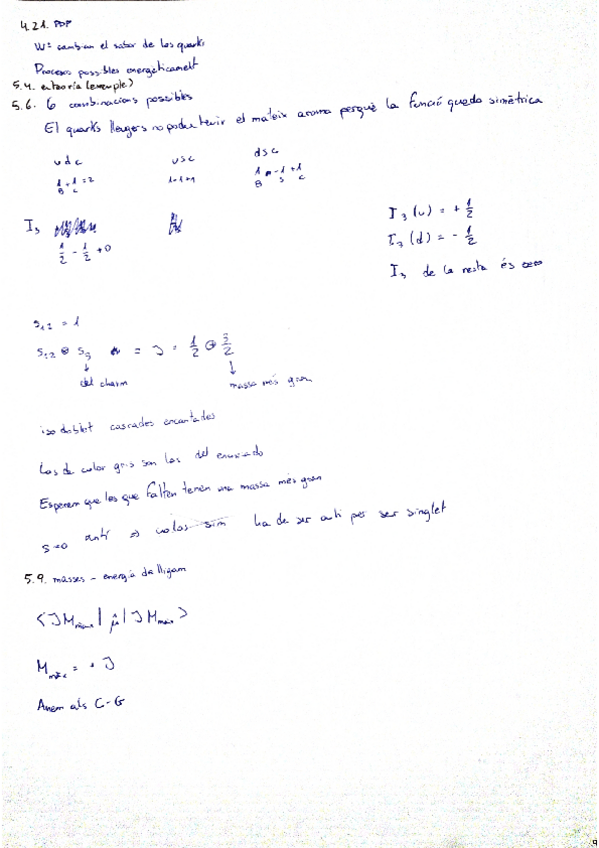 4.21. PDP
W± cambian el sabor de los quarks
Procesos possibles energèticament
5.4. en teoría (exemple)
5.6. 6 combinacions possibles
El quarks lleugers no poden tenir el mateix aroma perquè la funció queda simètrica
udc usc dsc
1/B + 1/C = 2 1-1+1 1/B + -1/S + 1/C
I₃
1/2 - 1/2 + 0
I₃ (u) = + 1/2
I₃ (d) = - 1/2
I₃ de la resta és zero
S₁₂ = 1
S₁₂ ⊗ S₃ = J = 1/2 ⊕ 3/2
↓ ↓
del charm massa més gran
isodoblet cascades encantades
Las de color gris son las del enunciado
Esperem que les que falten tenen una massa més gran
S=0 anti ⇒ color sim ha de ser anti per ser singlet
5.9. masses - energía de lligam
< J M | μ̂ | J M >
M = + J
Anem als C-G